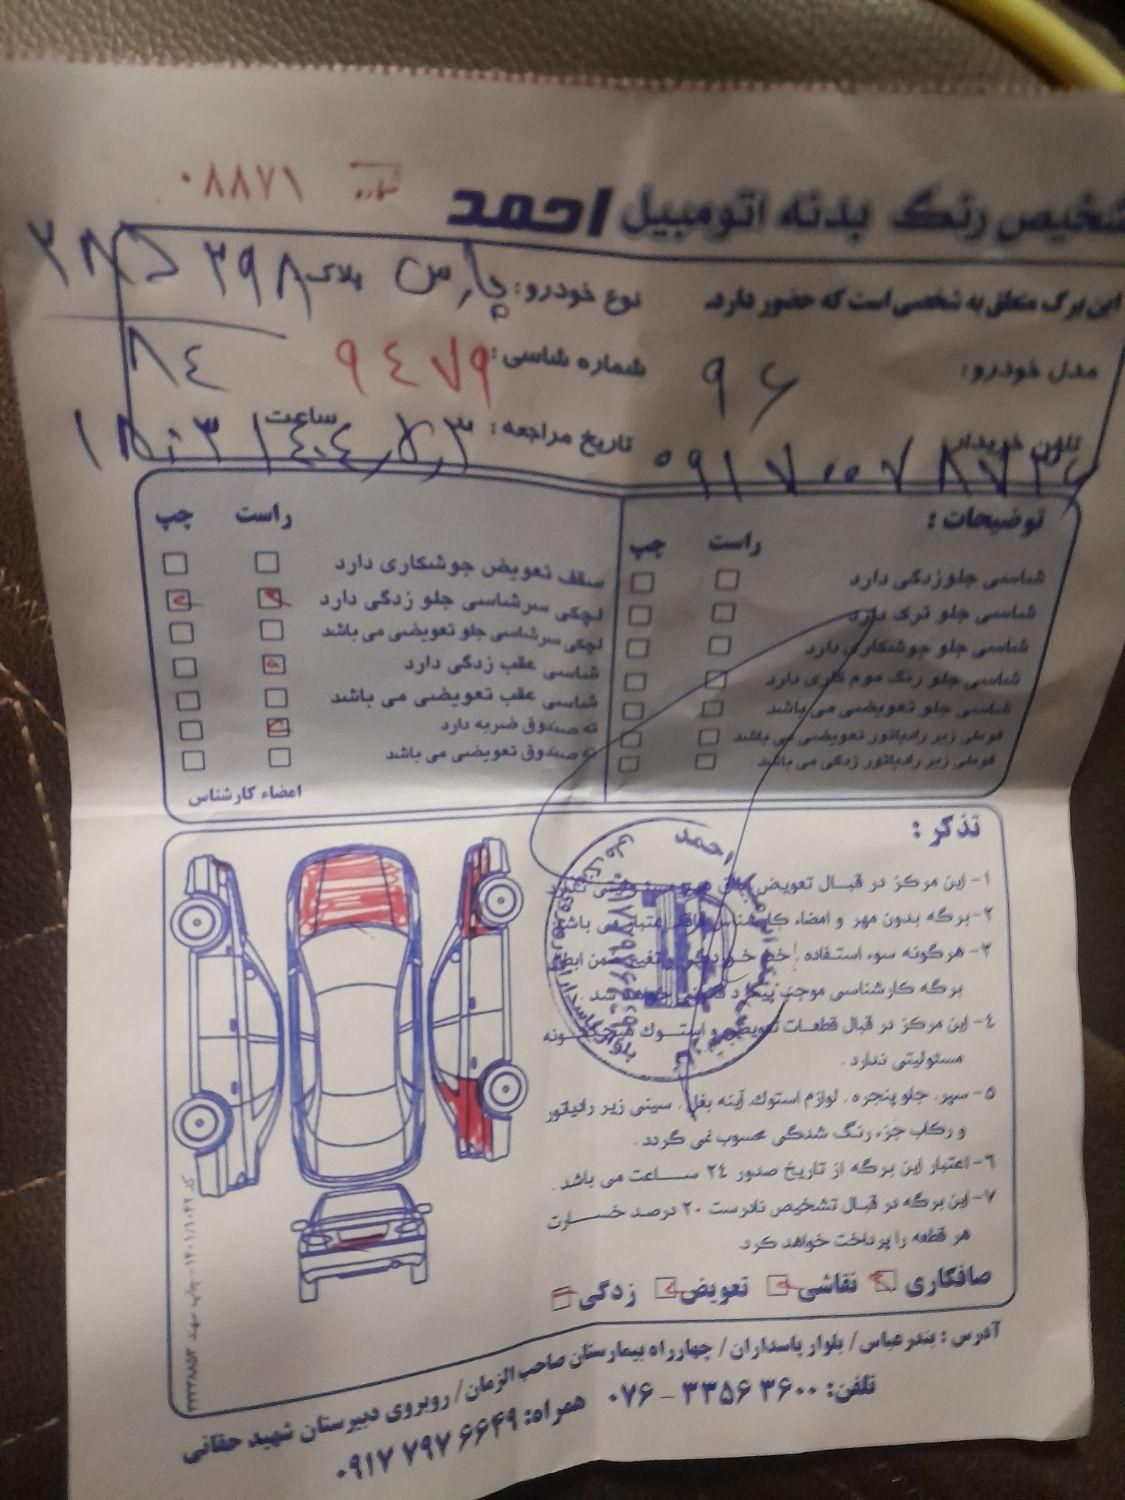 تشخیص رنگ بدنه اتومبیل احمد
شماره ۰۸۸۷۱
این برگ متعلق به شخصی است که حضور دارد.
نوع خودرو: پارس پلاک ۳۹۸
۸۴
مدل خودرو: ۹۶
شماره شاسی: ۹۴۷۹
تلفن خریدار
تاریخ مراجعه:
ساعت
توضیحات :
راست چپ
شاسی جلوزدگی دارد
شاسی جلو ترک دارد
شاسی جلو جوشکاری دارد
شاسی جلو رنگ موم کاری دارد
شاسی جلو تعویضی می باشد
قوطی زیر رادیاتور تعویضی می باشد
قوطی زیر رادیاتور زدگی می باشد
راست چپ
سقف تعویض جوشکاری دارد
لچکی سرشاسی جلو زدگی دارد
لچکی سرشاسی جلو تعویضی می باشد
شاسی عقب زدگی دارد
شاسی عقب تعویضی می باشد
ته صندوق ضربه دارد
ته صندوق تعویضی می باشد
امضاء کارشناس
تذکر :
۱- این مرکز در قبال تعویض
۲- برگه بدون مهر و امضاء کارشناس
۳- هرگونه سوء استفاده
برگه کارشناسی موجب پیگرد قانونی خواهد شد .
٤- این مرکز در قبال قطعات تعویضی و استوک هیچگونه
مسئولیتی ندارد .
۵- سپر، جلو پنجره ، لوازم استوک، آینه بغل ، سینی زیر رادیاتور
و رکاب جزء رنگ شدگی محسوب نمی گردد .
۶- اعتبار این برگه از تاریخ صدور ٢٤ ساعت می باشد .
۷- این برگه در قبال تشخیص نادرست ۲۰ درصد خسارت
هر قطعه را پرداخت خواهد کرد.
صافکاری نقاشی تعویض زدگی
آدرس : بندرعباس/ بلوار پاسداران/ چهارراه بیمارستان صاحب الزمان/ روبروی دبیرستان شهید حقانی
تلفن: ۳۶۰۰ ۳۳۵۶ - ۰۷۶ همراه: ۶۶۴۹ ۷۹۷ ۰۹۱۷
احمد